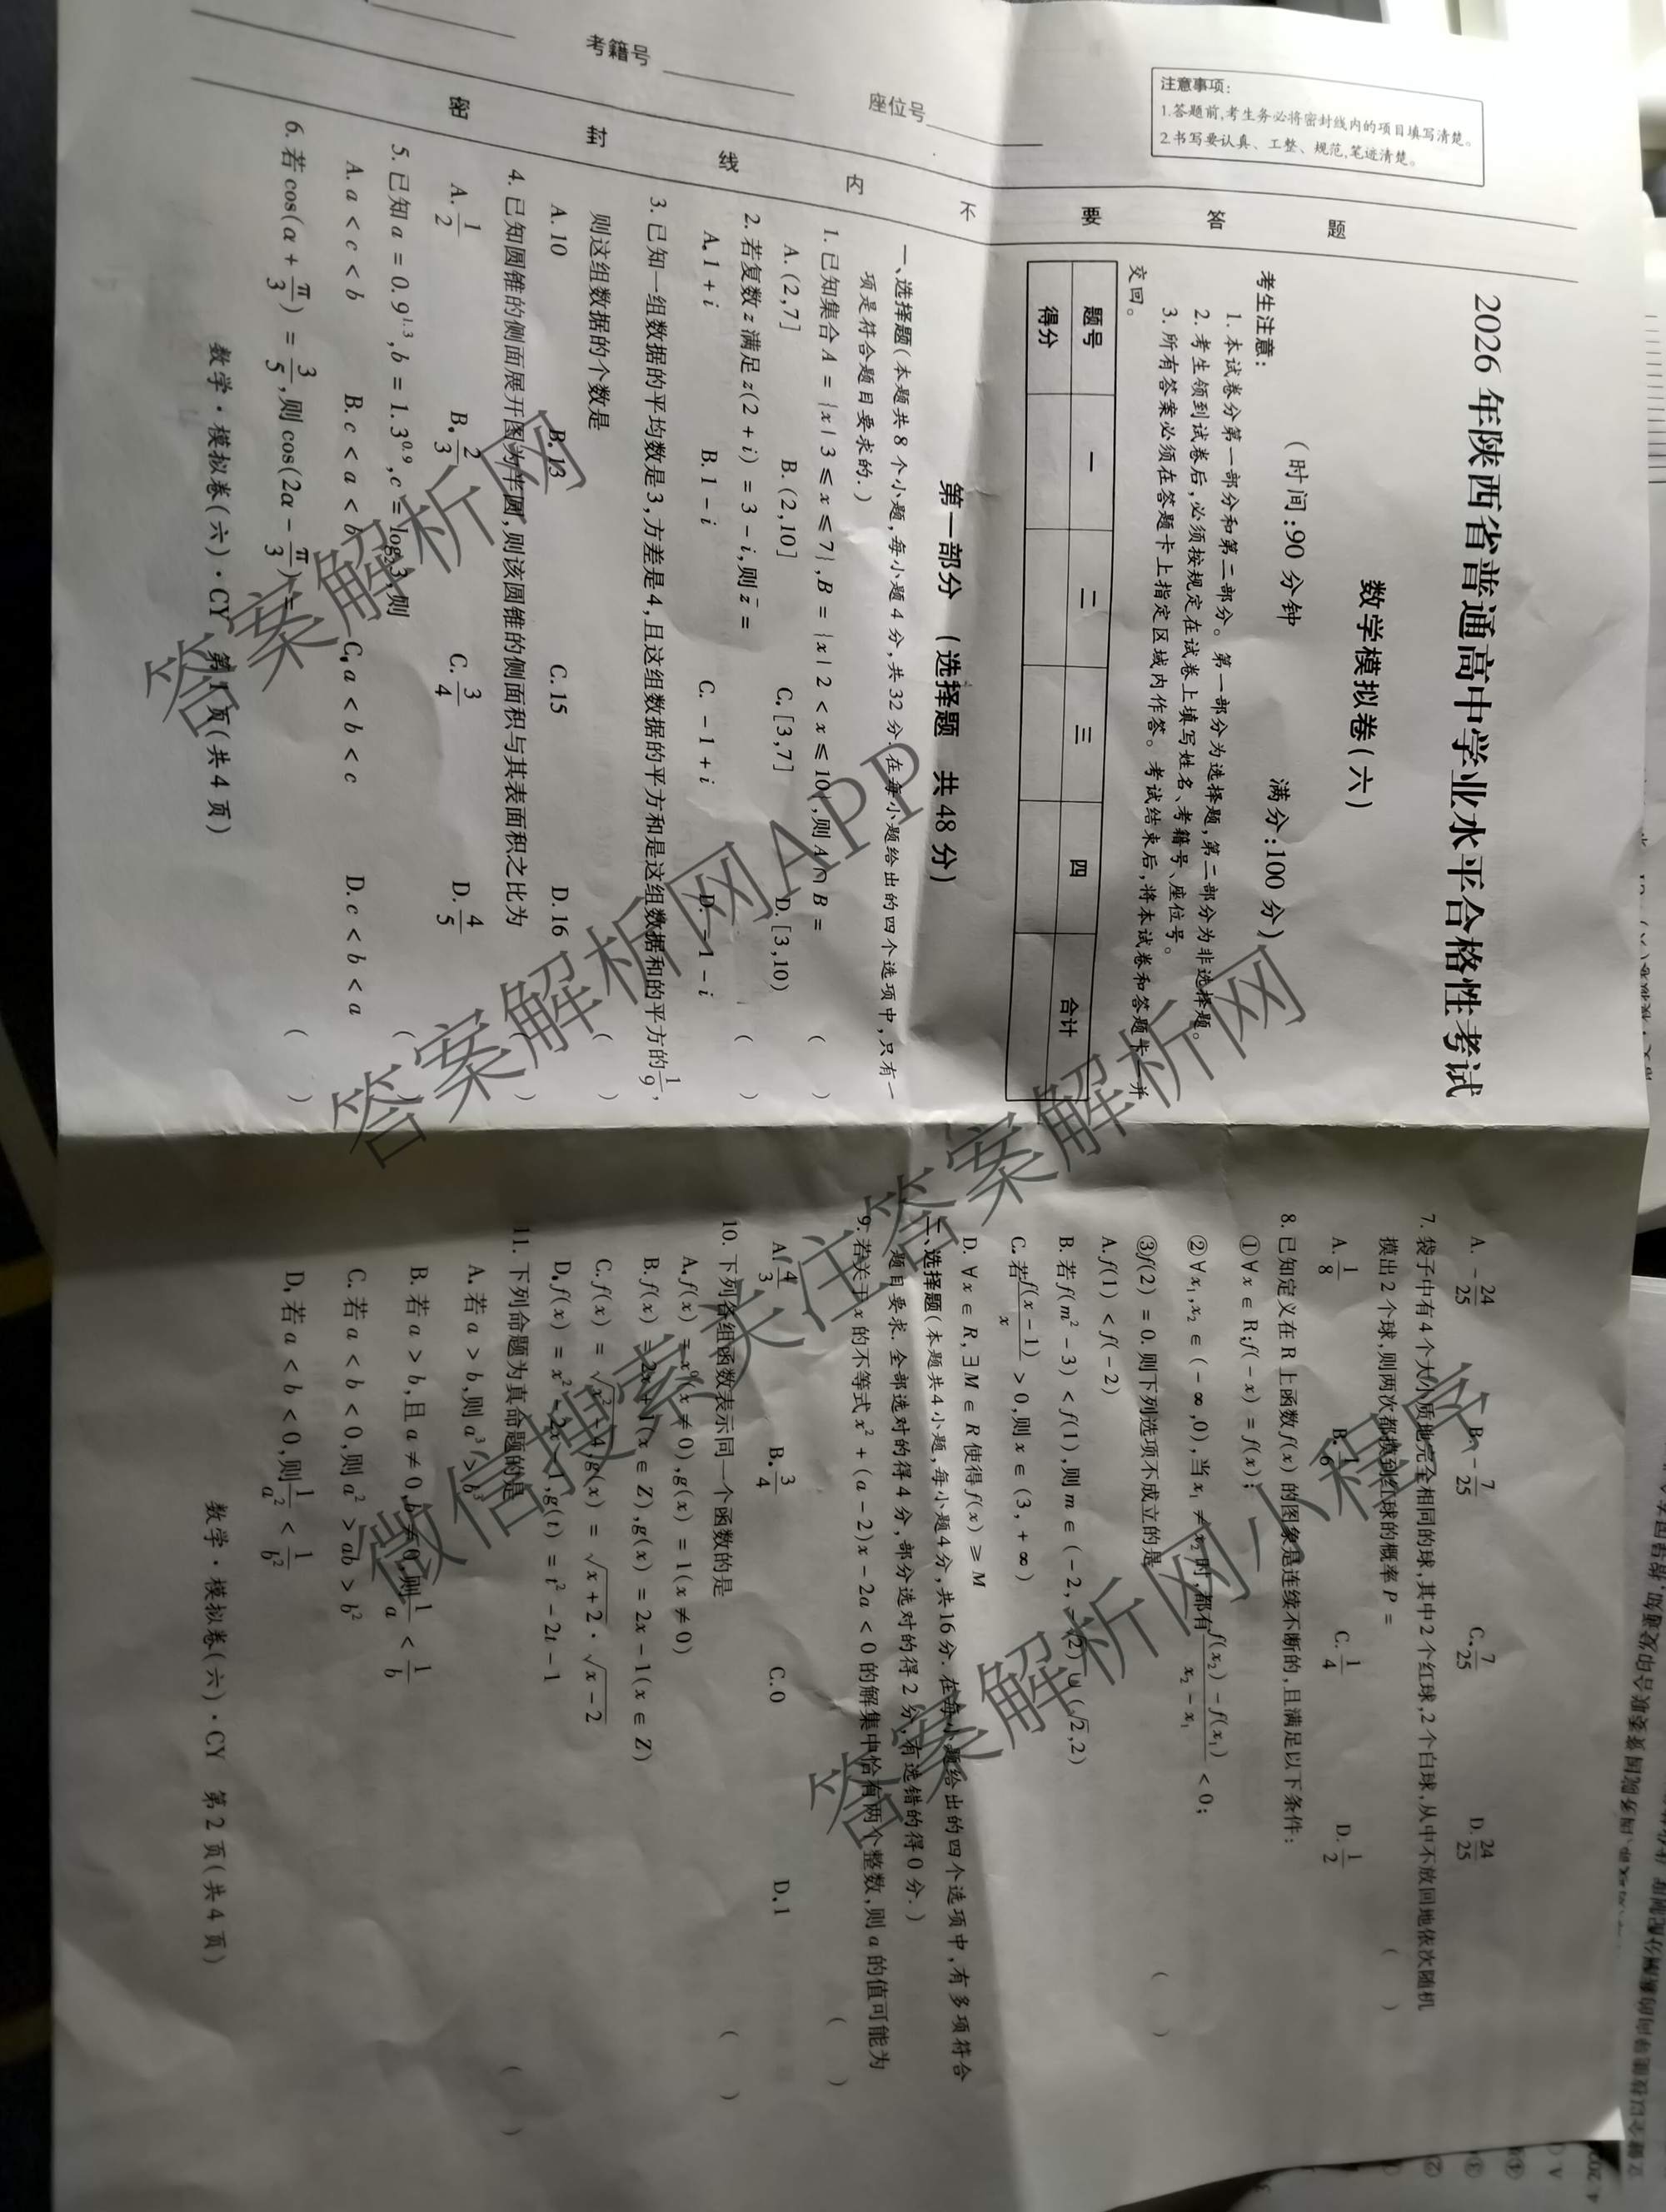 注意事项:
1.答题前,考生务必将密封线内的项目填写清楚。
2.书写要认真、工整、规范,笔迹清楚。
考籍号
座位号
密 封 线 内 不 要 答 题
2026年陕西省普通高中学业水平合格性考试
数学模拟卷(六)
(时间:90分钟 满分:100分)
考生注意:
1.本试卷分第一部分和第二部分。第一部分为选择题,第二部分为非选择题。
2.考生领到试卷后,必须按规定在试卷上填写姓名、考籍号、座位号。
3.所有答案必须在答题卡上指定区域内作答。考试结束后,将本试卷和答题卡一并
交回。
题号 一 二 三 四 合计
得分
第一部分 (选择题 共48分)
一、选择题(本题共8个小题,每小题4分,共32分.在每小题给出的四个选项中,只有一
项是符合题目要求的.)
1.已知集合A={x|3≤x≤7},B={x|2<x≤10},则A∩B= ( )
A.(2,7] B.(2,10] C.[3,7] D.[3,10)
2.若复数z满足z(2+i)=3-i,则z̄= ( )
A.1+i B.1-i C.-1+i D.-1-i
3.已知一组数据的平均数是3,方差是4,且这组数据的平方和是这组数据和的平方的1/9,
则这组数据的个数是 ( )
A.10 B.13 C.15 D.16
4.已知圆锥的侧面展开图为半圆,则该圆锥的侧面积与其表面积之比为 ( )
A.1/2 B.2/3 C.3/4 D.4/5
5.已知a=0.9^1.3,b=1.3^0.9,c=log₂3,则 ( )
A.a<c<b B.c<a<b C.a<b<c D.c<b<a
6.若cos(α+π/3)=3/5,则cos(2α-π/3)= ( )
数学·模拟卷(六)·CY 第1页(共4页)
A.-24/25 B.-7/25 C.7/25 D.24/25
7.袋子中有4个大小质地完全相同的球,其中2个红球,2个白球,从中不放回地依次随机
摸出2个球,则两次都摸到红球的概率P= ( )
A.1/8 B.1/6 C.1/4 D.1/2
8.已知定义在R上函数f(x)的图象是连续不断的,且满足以下条件:
①∀x∈R;f(-x)=f(x);
②∀x₁,x₂∈(-∞,0),当x₁≠x₂时,都有(f(x₂)-f(x₁))/(x₂-x₁)<0;
③f(2)=0.则下列选项不成立的是 ( )
A.f(1)<f(-2)
B.若f(m²-3)<f(1),则m∈(-2,-√2)∪(√2,2)
C.若f(x-1)/x>0,则x∈(3,+∞)
D.∀x∈R,∃M∈R使得f(x)≥M
二、选择题(本题共4小题,每小题4分,共16分.在每小题给出的四个选项中,有多项符合
题目要求.全部选对的得4分,部分选对的得2分,有选错的得0分.)
9.若关于x的不等式x²+(a-2)x-2a<0的解集中恰有两个整数,则a的值可能为 ( )
A.4/3 B.3/4 C.0 D.1
10.下列各组函数表示同一个函数的是 ( )
A.f(x)=x⁰(x≠0),g(x)=1(x≠0)
B.f(x)=2x+1(x∈Z),g(x)=2x-1(x∈Z)
C.f(x)=√(x²-4),g(x)=√(x+2)·√(x-2)
D.f(x)=x²-2x-1,g(t)=t²-2t-1
11.下列命题为真命题的是 ( )
A.若a>b,则a³>b³
B.若a>b,且a≠0,b≠0,则1/a<1/b
C.若a<b<0,则a²>ab>b²
D.若a<b<0,则1/a²<1/b²
数学·模拟卷(六)·CY 第2页(共4页)
答案解析网
答案解析网APP
微信搜索关注答案解析网
答案解析网小程序